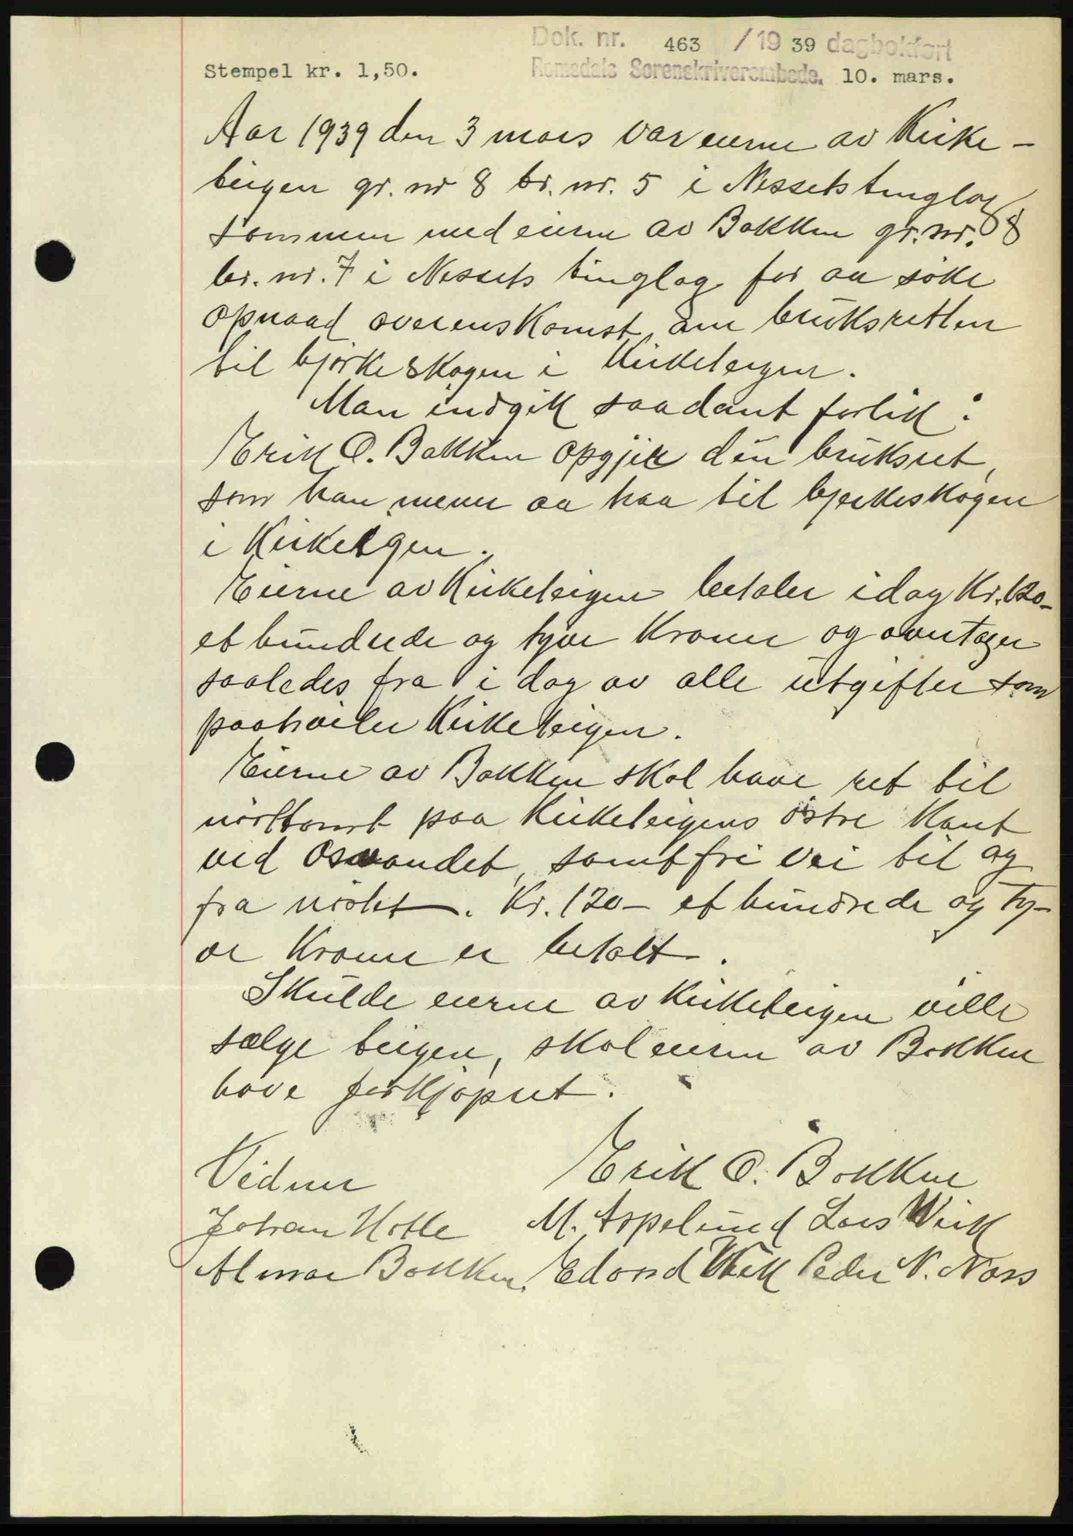 Dok. nr. 463 / 19 39 dagbokført
Stempel kr. 1,50. Romsdals Sorenskriverembede. 10. mars.
Aar 1939 den 3 mars var eierne av Kirke-
teigen gr. nr 8 br. nr. 5 i Nessets tinglag
sammen med eierne av Bakken gr. nr. 8
br. nr. 7 i Nessets tinglag for aa søke
opnaad overenskomst om bruksretten
til bjørkeskogen i Kirketeigen.
Man indgik saadant forlik:
Erik O. Bakken opgjir den bruksret,
som han mener aa haa til bjerkeskogen
i Kirkeigen.
Eierne av Kirketeigen betaler idag Kr. 120-
et hundrede og tyve Kroner og overtager
saaledes fra i dag av alle utgifter som
paahviler Kirketeigen.
Eierne av Bakken skal have ret til
nøsttomt paa Kirketeigens østre Kant
ved Osvandet, samt fri vei til og
fra nøstet. Kr. 120- et hundrede og ty-
ve Kroner er betalt.
Skulde eierne av Kirketeigen ville
sælge teigen, skal eierne av Bakken
have forkjøpsret.
Vidner Erik O. Bakken
Johan Holle M. Aspelund Lars Wiik
Almar Bakken. Edvard Wiik Peder N. Næss